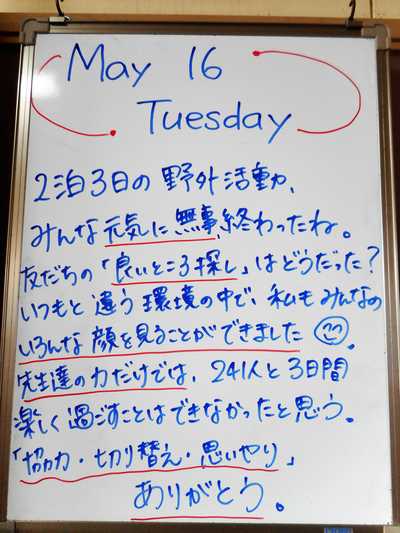 May 16
Tuesday
2泊3日の野外活動、
みんな元気に無事終わったね。
友だちの「良いところ探し」はどうだった?
いつもと違う環境の中で、私もみんなの
いろんな顔を見ることができました。
先生達の力だけでは、241人と3日間
楽しく過ごすことはできなかったと思う。
「協力・切り替え・思いやり」
ありがとう。